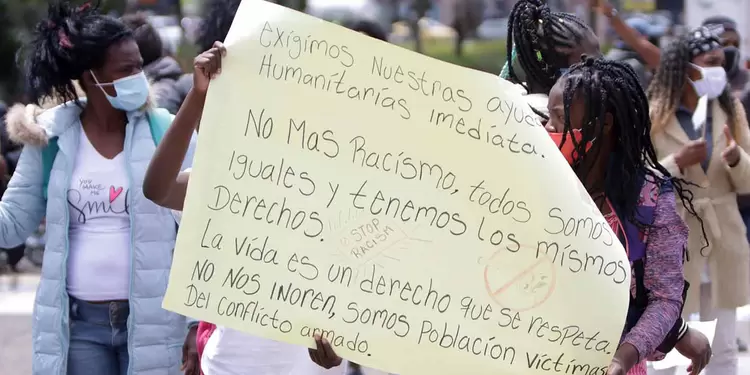 exigimos Nuestras ayu
Humanitarias imediata.
NO Mas Racismo, todos somos
iguales y tenemos los mismos
Derechos.
STOP
RACISM
La vida es un derecho que se respeta.
NO NOS INOREN, somos Población víctimas
Del conflicto armado.
YOU MAKE ME
Smile